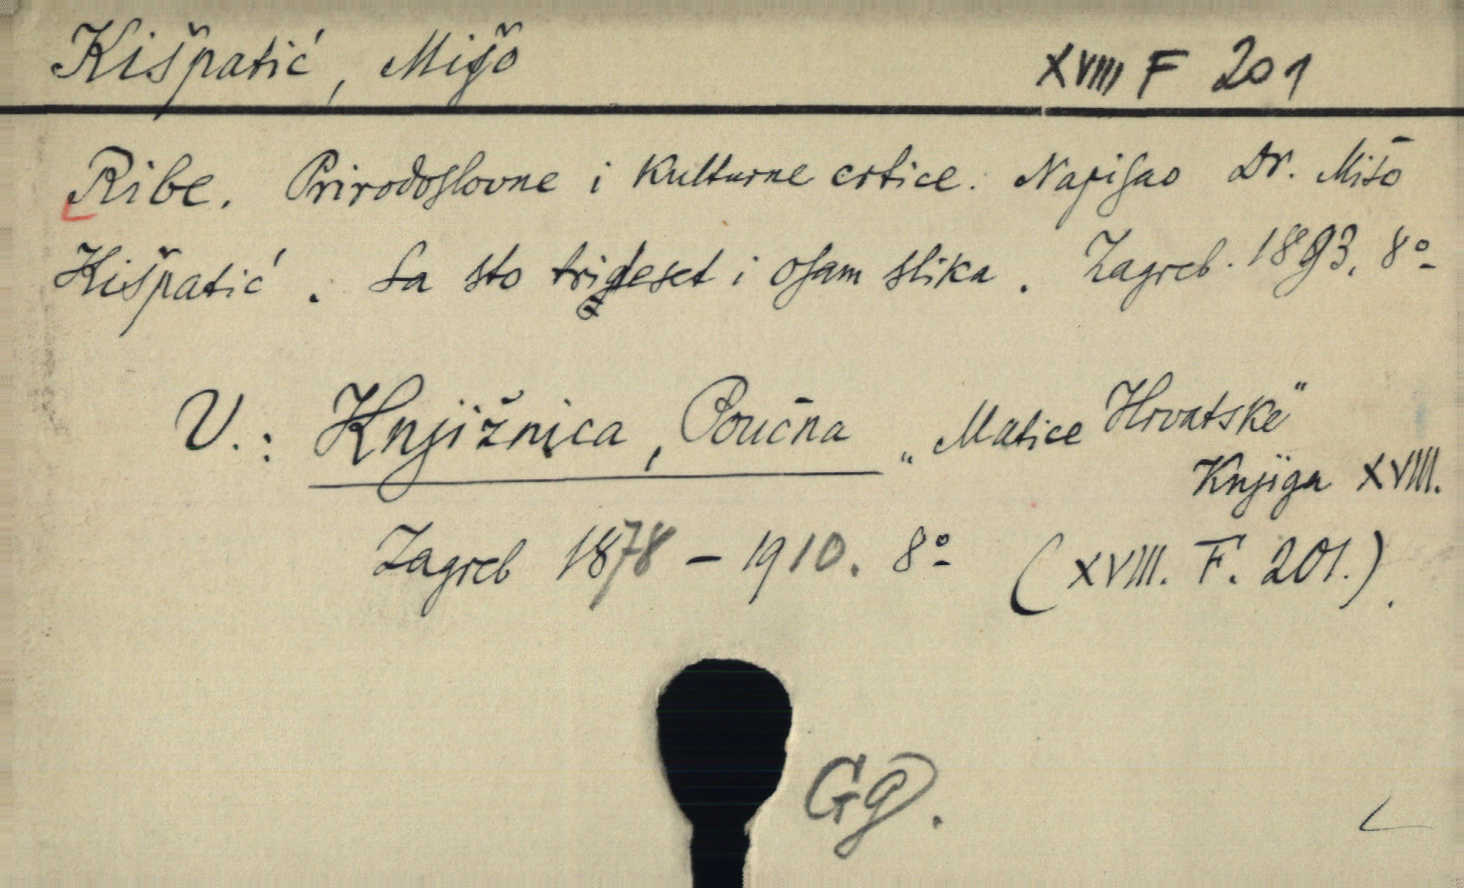 Kišpatić, Mijo XVIII F 201
Ribe. Prirodoslovne i kulturne crtice. Napisao Dr. Mišo
Kišpatić. Sa sto trideset i osam slika. Zagreb. 1893. 8º
V.: Knjižnica, Poučna „Matice Hrvatske"
Knjiga XVIII.
Zagreb 1878 – 1910. 8º (XVIII. F. 201.).
Gg.